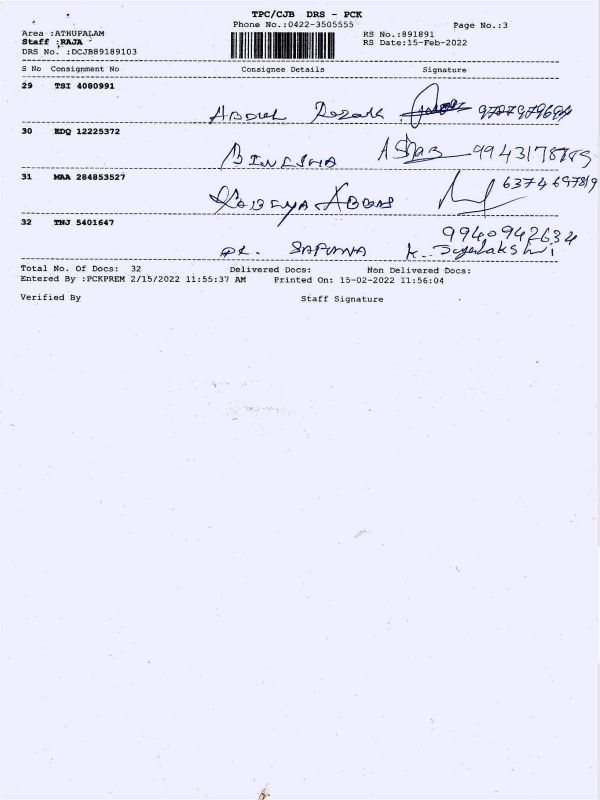 TPC/CJB DRS - PCK
Phone No.:0422-3505555
Page No.:3
Area :ATHUPALAM
RS No.:891891
Staff :RAJA
RS Date:15-Feb-2022
DRS No. :DCJB89189103
S No Consignment No Consignee Details Signature
29 TSI 4080991
Abdul Razak
30 EDQ 12225372
BINCIHA ASHAB
31 MAA 284853527
Abbas
32 TNJ 5401647
9940942634
DR. SAPHNA K. Jayalakshmi
Total No. Of Docs: 32 Delivered Docs: Non Delivered Docs:
Entered By :PCKPREM 2/15/2022 11:55:37 AM Printed On: 15-02-2022 11:56:04
Verified By Staff Signature